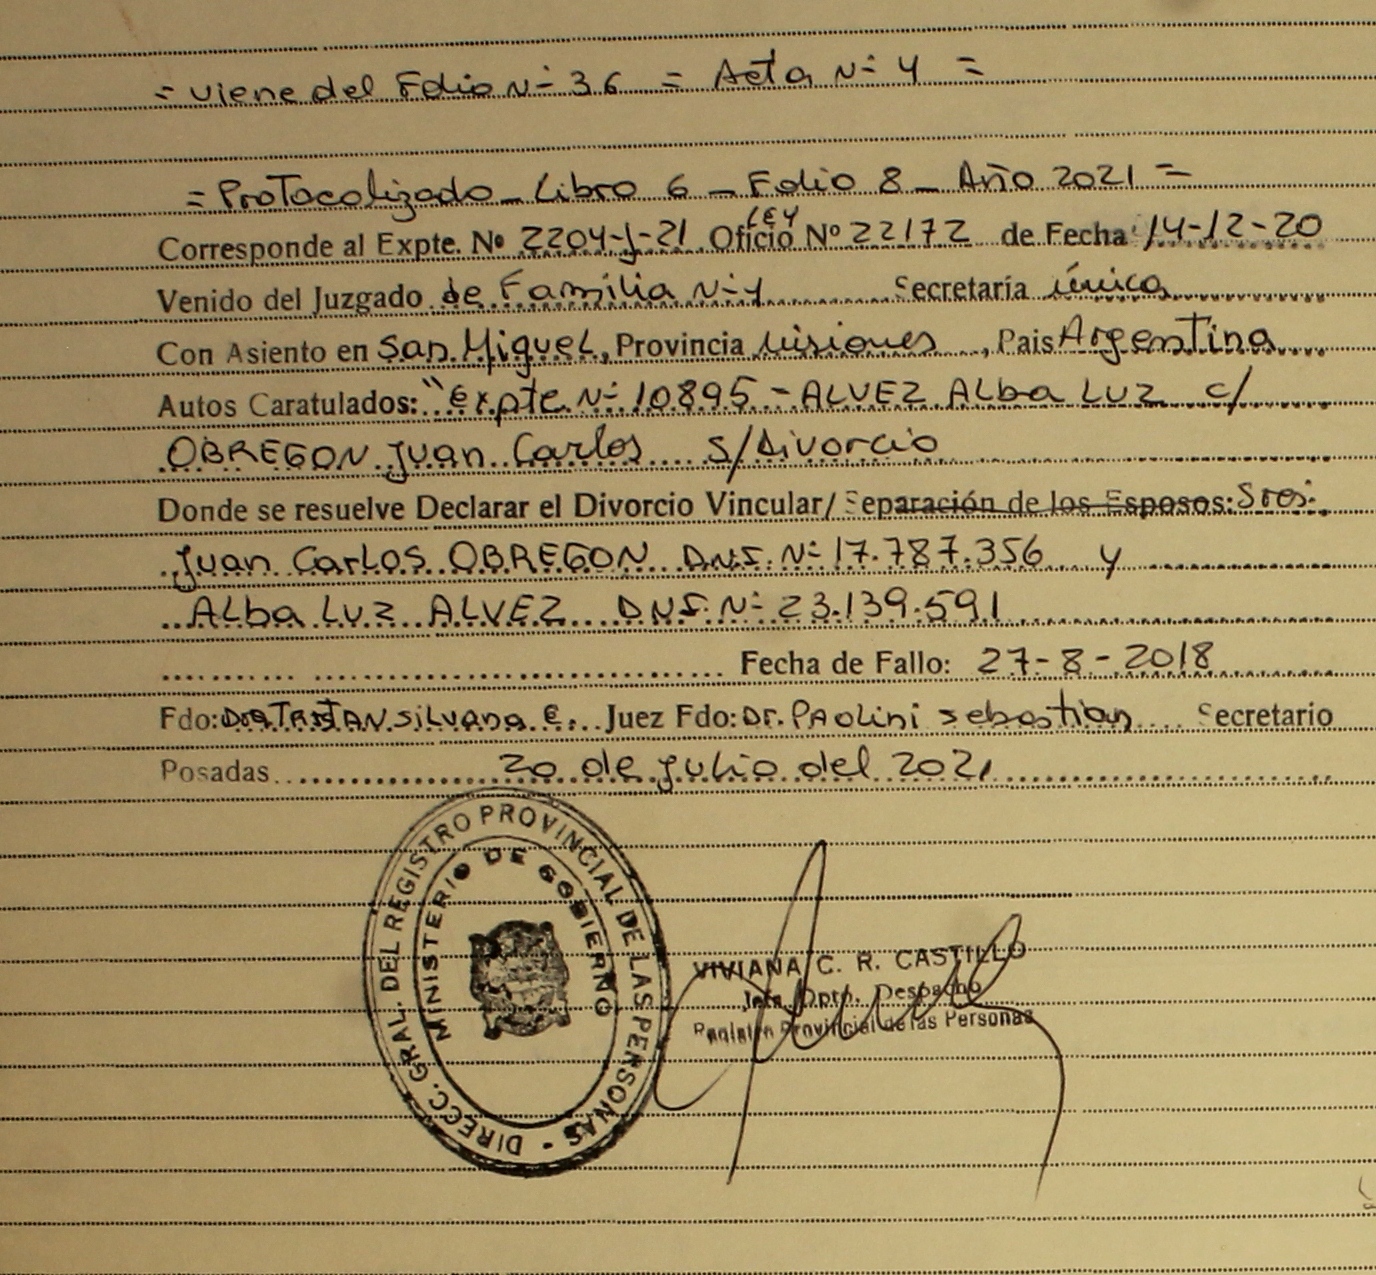 = viene del Folio N- 36 = Acta N- 4 =
= Protocolizado - Libro 6 - Folio 8 - Año 2021 =
Corresponde al Expte. Nº 2204-J-21 Oficio LEY Nº 22172 de Fecha 14-12-20
Venido del Juzgado de Familia N-1 Secretaría única
Con Asiento en San Miguel, Provincia Misiones, Pais Argentina
Autos Caratulados: "expte N- 10895 - ALVEZ Alba LUZ c/
OBREGON Juan Carlos s/Divorcio
Donde se resuelve Declarar el Divorcio Vincular/ Separación de los Esposos: Sres.
Juan Carlos OBREGON D.N.I. N- 17.787.356 y
Alba LUZ ALVEZ D.N.I. N- 23.139.591
Fecha de Fallo: 27-8-2018
Fdo: Dra TRISTAN Silvana E. Juez Fdo: Dr. PAOlini sebastian Secretario
Posadas 20 de Julio del 2021
DIRECC. GRAL. DEL REGISTRO PROVINCIAL DE LAS PERSONAS -
MINISTERIO DE GOBIERNO
VIVIANA C. R. CASTILLO
Jefa Dpto. Despacho
Registro Provincial de las Personas